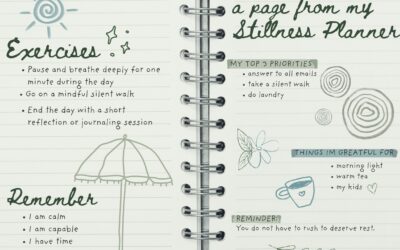 Exercises
Pause and breathe deeply for one
minute during the day
Go on a mindful silent walk
End the day with a short
reflection or journaling session
Remember
I am calm
I am capable
I have time
a page from my
Stillness Planner
MY TOP 3 PRIORITIES
answer to all emails
take a silent walk
do laundry
THINGS IM GREATFUL FOR
morning light
warm tea
my kids
REMINDER:
You do not have to rush to deserve rest.